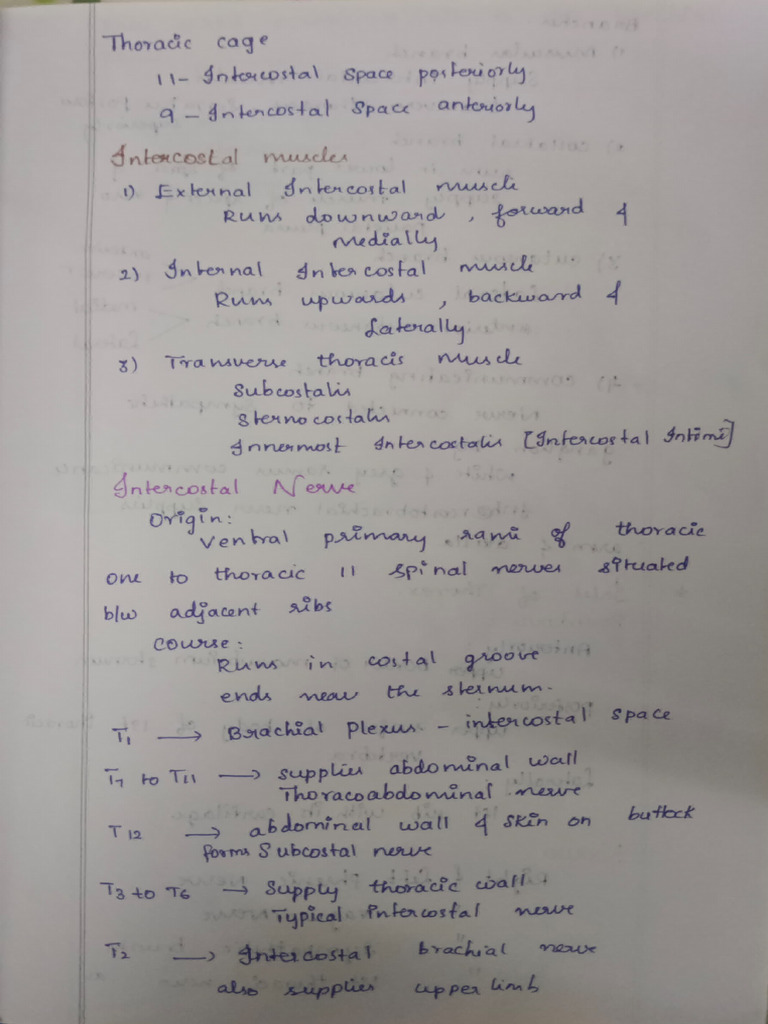 Thoracic cage
11- Intercostal Space posteriorly
9 - Intercostal Space anteriorly
Intercostal muscles
1) External Intercostal muscle
Runs downward, forward &
medially
2) Internal Intercostal muscle
Runs upwards, backward &
Laterally
3) Transverse thoracis muscle
Subcostalis
Sternocostalis
Innermost Intercostalis [Intercostal Intimi]
Intercostal Nerve
Origin:
Ventral primary rami of thoracic
one to thoracic 11 spinal nerves situated
b/w adjacent ribs
Course:
Runs in costal groove
ends near the sternum.
T1 → Brachial Plexus - intercostal space
T7 to T11 → supplies abdominal wall
Thoracoabdominal nerve
T12 → abdominal wall & skin on buttock
forms Subcostal nerve
T3 to T6 → Supply thoracic wall.
Typical Intercostal nerve
T2 → Intercostal brachial nerve
also supplies upper limb